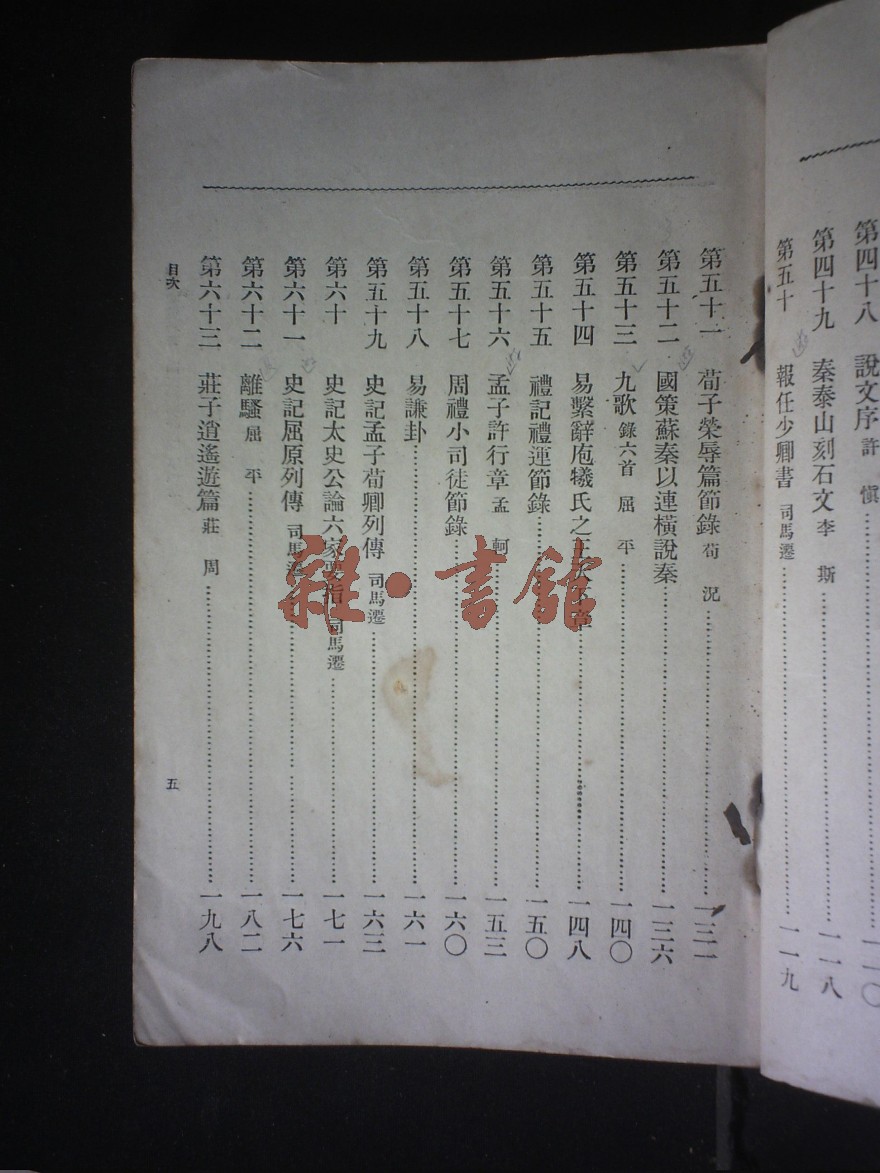 第四十八 說文序 許慎……一一〇
第四十九 秦泰山刻石文 李斯……一一八
第五十 報任少卿書 司馬遷……一一九
第五十一 荀子榮辱篇節錄 荀況……一三一
第五十二 國策蘇秦以連橫說秦……一三六
第五十三 九歌 錄六首 屈平……一四〇
第五十四 易繫辭庖犧氏之王天下章……一四八
第五十五 禮記禮運節錄……一五〇
第五十六 孟子許行章 孟軻……一五三
第五十七 周禮小司徒節錄……一六〇
第五十八 易謙卦……一六一
第五十九 史記孟子荀卿列傳 司馬遷……一六三
第六十 史記太史公論六家要指 司馬遷……一七一
第六十一 史記屈原列傳 司馬遷……一七六
第六十二 離騷 屈平……一八二
第六十三 莊子逍遙遊篇 莊周……一九八
目次 五
雜·書館